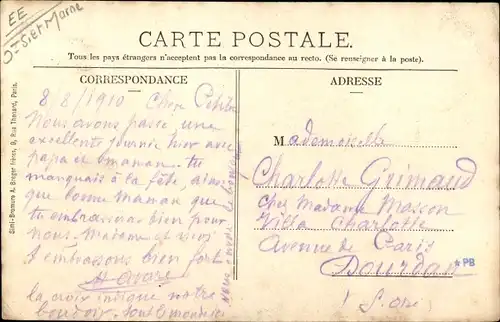 EE
CARTE POSTALE.
Tous les pays étrangers n'acceptent pas la correspondance au recto. (Se renseigner à la poste).
CORRESPONDANCE
8/8/1910 Chère
Nous avons passé une
excellente journée hier avec
papa et maman. tu
manquais à la fête, ainsi
que bonne maman que
tu embrasseras bien pour
nous. Madame et
t'embrassons bien fort
la croix indique notre
boudoir. tout le monde ici
ADRESSE
Mademoiselle
Charlotte Grimaud
chez Madame Masson
Villa Charlotte
Avenue de Paris
Dourdan
S. Oise
*PB
Simi-Bromure A. Breger frères, 9, Rue Thénard, Paris.